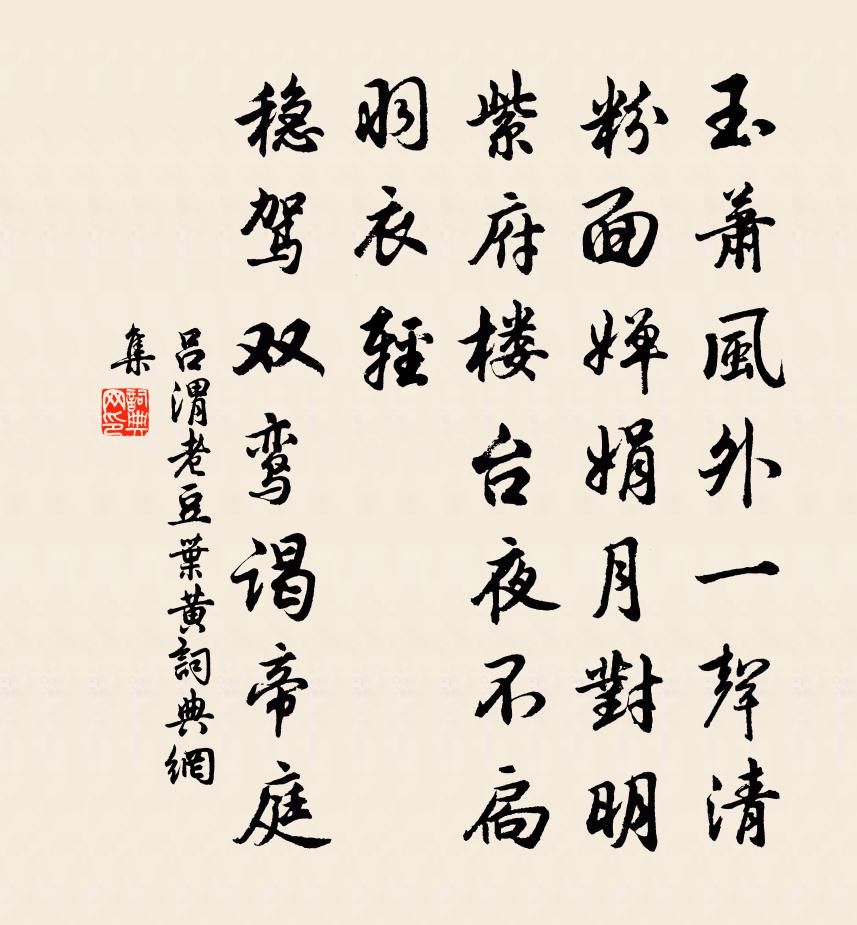 玉萧風外一聲清
粉面婵娟月對明
紫府楼台夜不扃
羽衣輕
稳驾双鸾谒帝庭
吕渭老豆葉黄詞典網
集
詞典
网印